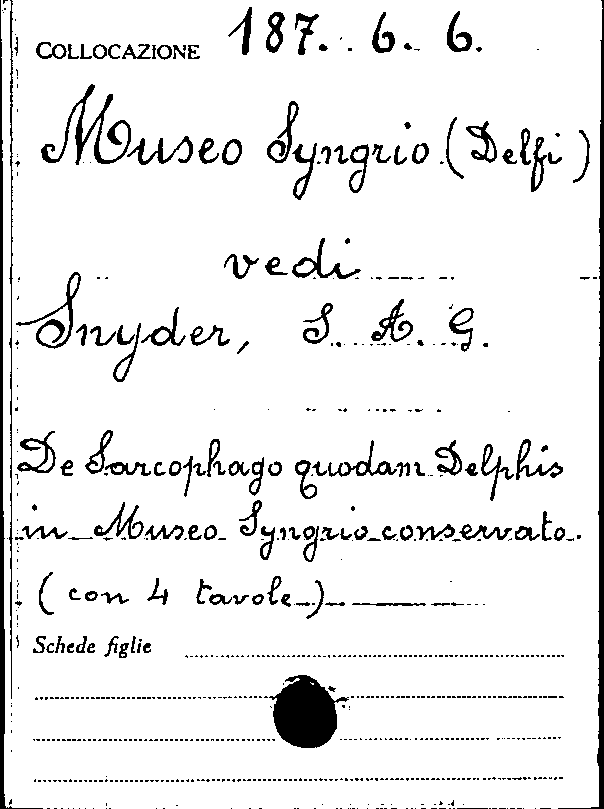 COLLOCAZIONE 187. 6. 6.
Museo Syngrio (Delfi)
vedi
Snyder, S. A. G.
De Sarcophago quodam Delphis
in Museo Syngrio conservato.
(con 4 tavole)
Schede figlie